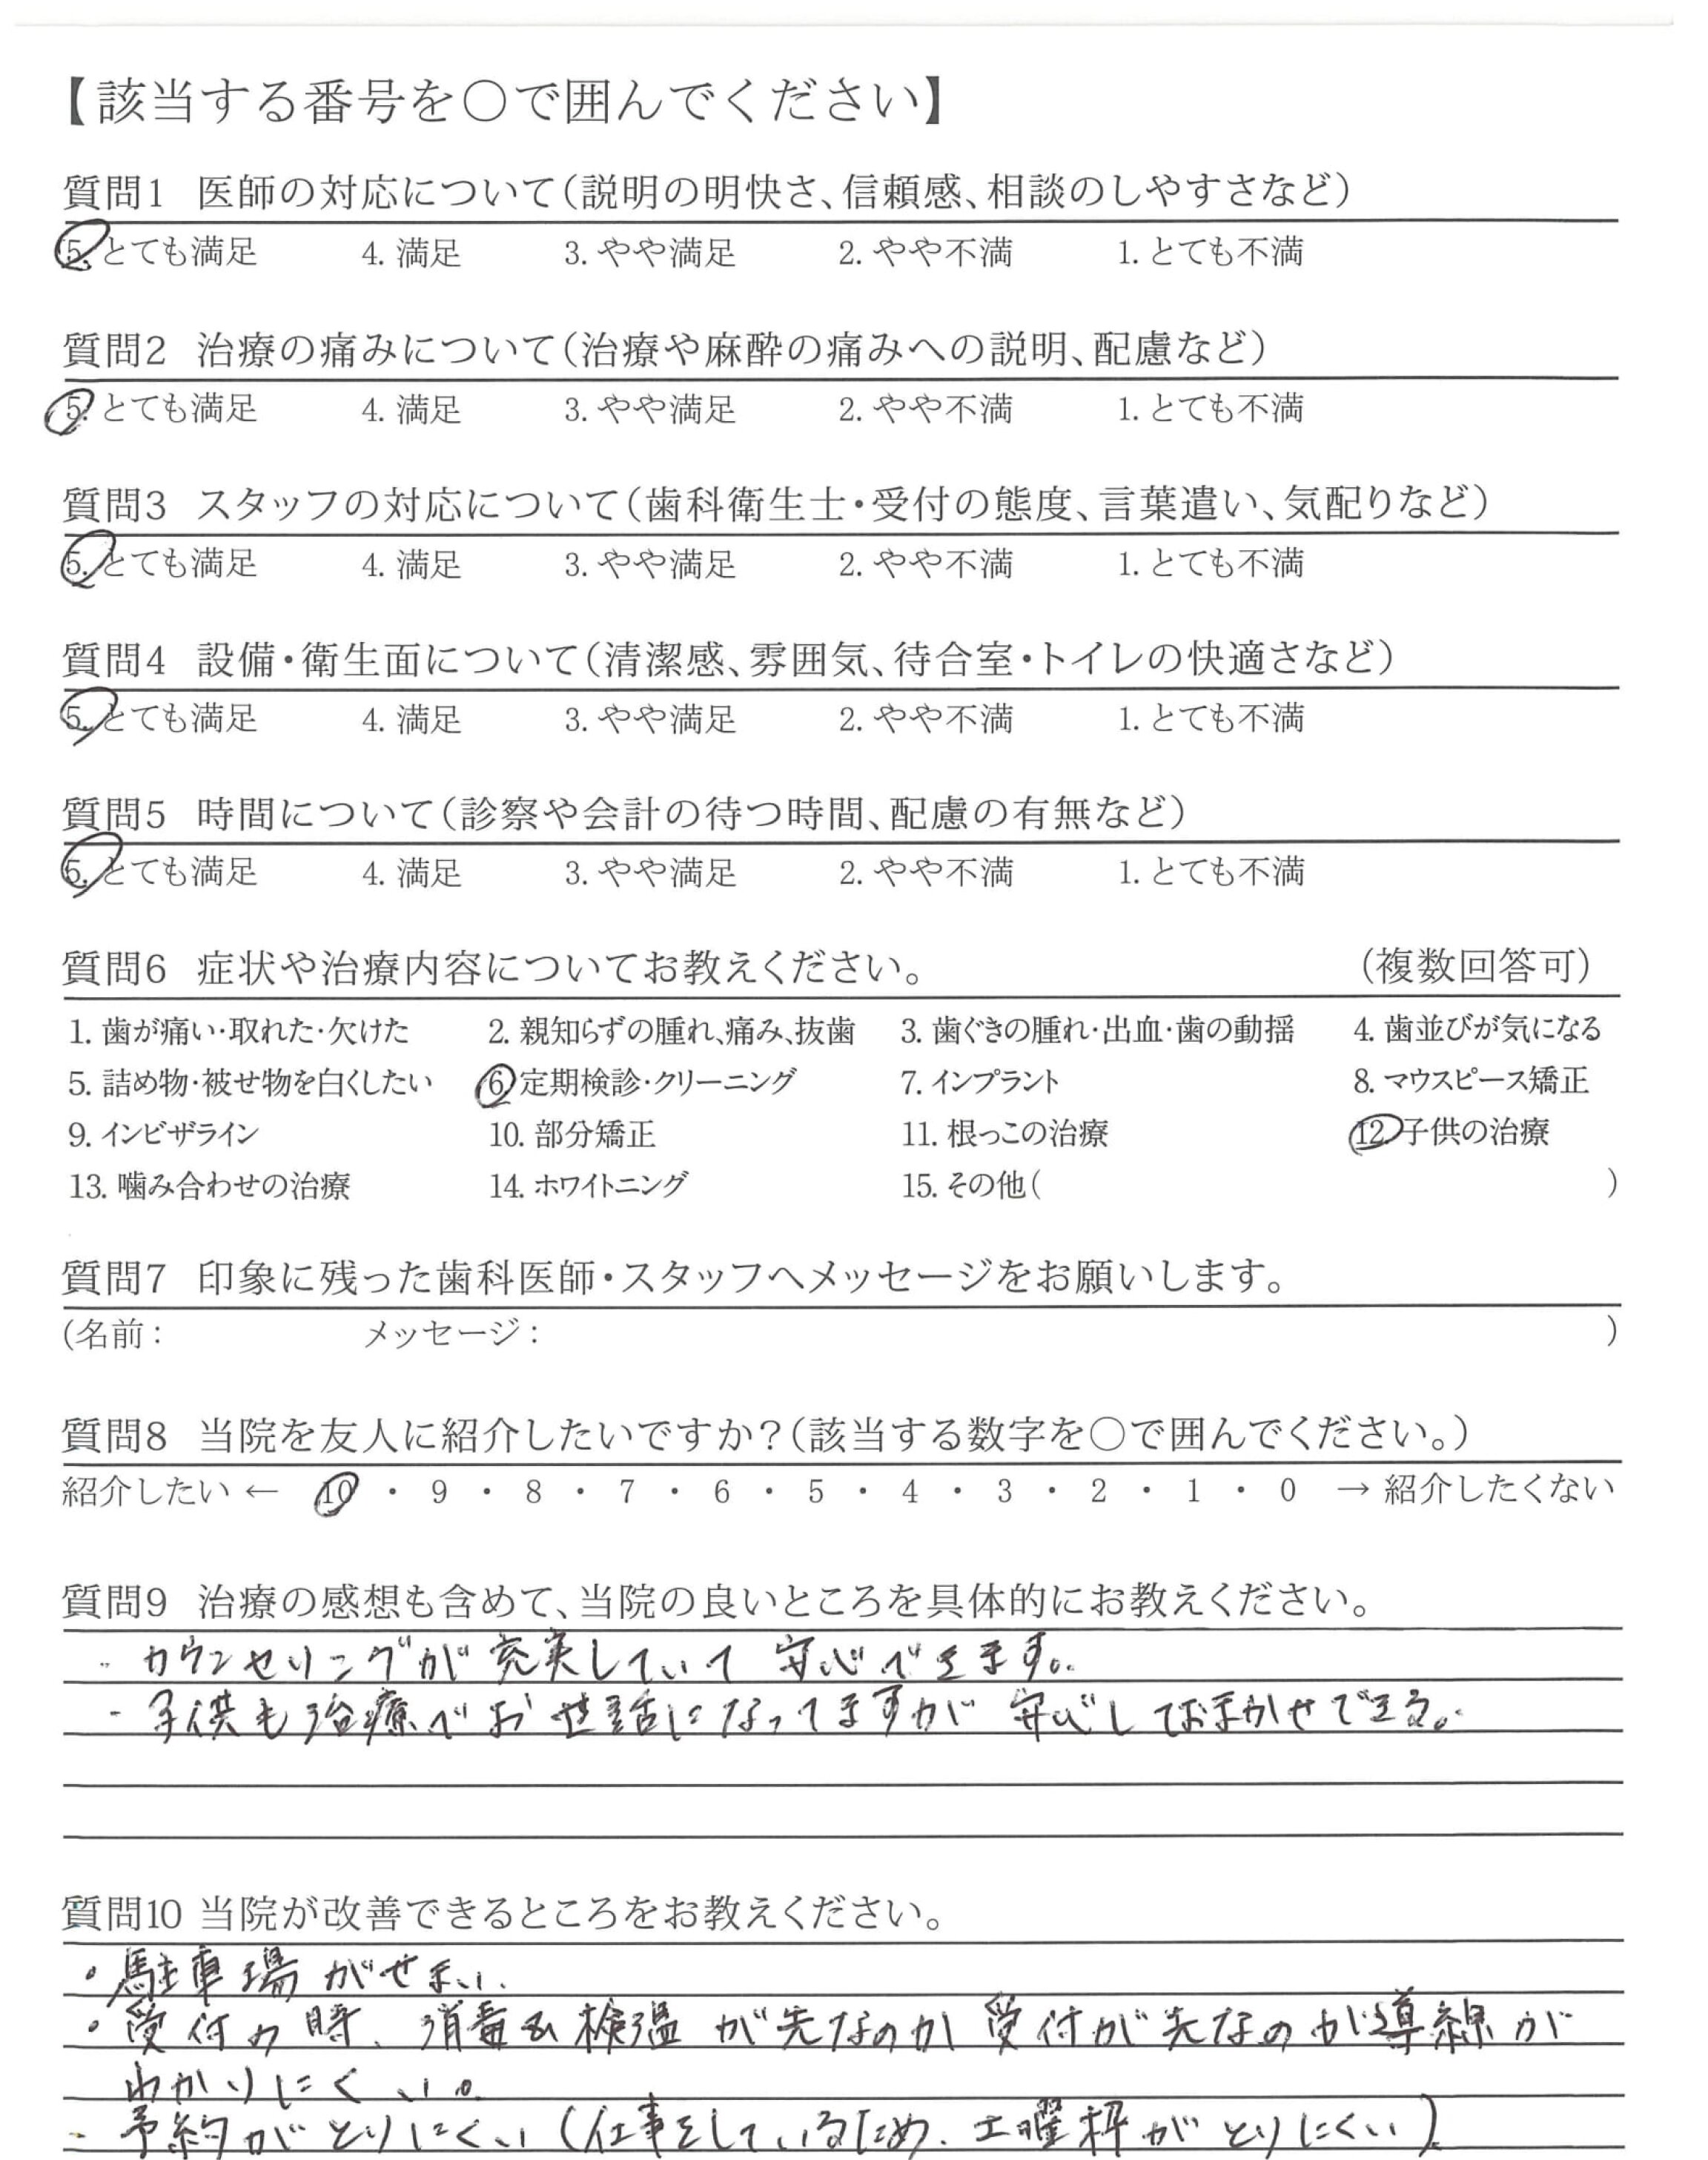 【該当する番号を○で囲んでください】
質問1 医師の対応について(説明の明快さ、信頼感、相談のしやすさなど)
5. とても満足 4. 満足 3. やや満足 2. やや不満 1. とても不満
質問2 治療の痛みについて(治療や麻酔の痛みへの説明、配慮など)
5. とても満足 4. 満足 3. やや満足 2. やや不満 1. とても不満
質問3 スタッフの対応について(歯科衛生士・受付の態度、言葉遣い、気配りなど)
5. とても満足 4. 満足 3. やや満足 2. やや不満 1. とても不満
質問4 設備・衛生面について(清潔感、雰囲気、待合室・トイレの快適さなど)
5. とても満足 4. 満足 3. やや満足 2. やや不満 1. とても不満
質問5 時間について(診察や会計の待つ時間、配慮の有無など)
5. とても満足 4. 満足 3. やや満足 2. やや不満 1. とても不満
質問6 症状や治療内容についてお教えください。 (複数回答可)
1. 歯が痛い・取れた・欠けた 2. 親知らずの腫れ、痛み、抜歯 3. 歯ぐきの腫れ・出血・歯の動揺 4. 歯並びが気になる
5. 詰め物・被せ物を白くしたい 6. 定期検診・クリーニング 7. インプラント 8. マウスピース矯正
9. インビザライン 10. 部分矯正 11. 根っこの治療 12. 子供の治療
13. 噛み合わせの治療 14. ホワイトニング 15. その他( )
質問7 印象に残った歯科医師・スタッフへメッセージをお願いします。
(名前: メッセージ: )
質問8 当院を友人に紹介したいですか?(該当する数字を○で囲んでください。)
紹介したい ← 10 ・ 9 ・ 8 ・ 7 ・ 6 ・ 5 ・ 4 ・ 3 ・ 2 ・ 1 ・ 0 → 紹介したくない
質問9 治療の感想も含めて、当院の良いところを具体的にお教えください。
・カウンセリングが充実していて 安心できます。
・子供も治療でお世話になってますが 安心しておまかせできる。
質問10 当院が改善できるところをお教えください。
・駐車場がせまい。
・受付の時、消毒&検温が先なのか 受付が先なのか導線が
わかりにくい。
・予約がとりにくい(仕事をしているため、土曜枠がとりにくい)